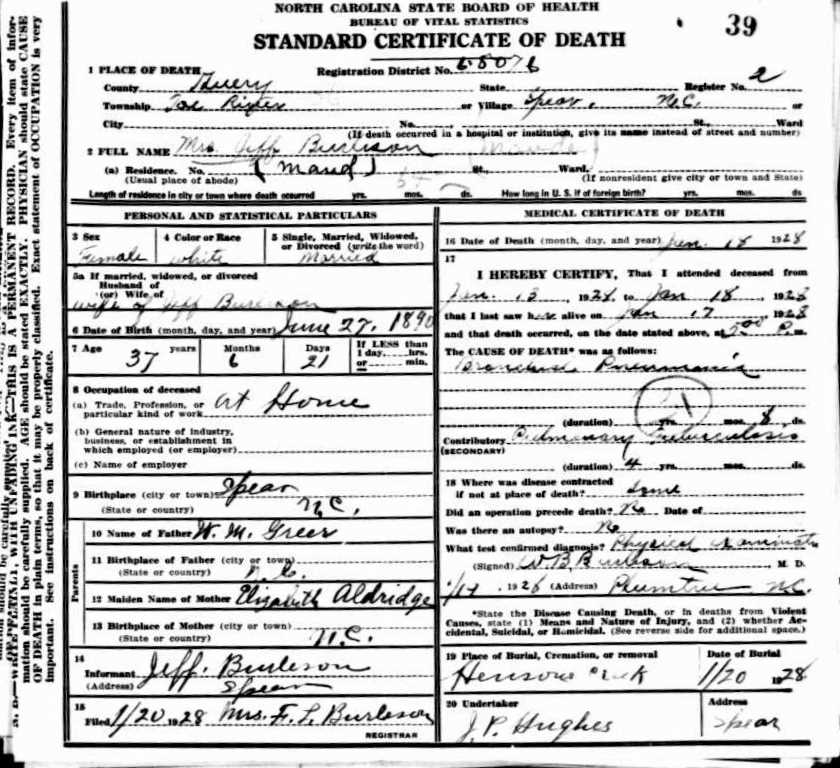 NORTH CAROLINA STATE BOARD OF HEALTH
BUREAU OF VITAL STATISTICS
STANDARD CERTIFICATE OF DEATH
39
1 PLACE OF DEATH Registration District No.
County Avery State Register No. 2
Township Toe River or Village Spear, N.C. or
City No. St., Ward
(If death occurred in a hospital or institution, give its name instead of street and number)
2 FULL NAME Mrs. Jeff Burleson
(a) Residence. No. (Maud) St., Ward.
(Usual place of abode) (If nonresident give city or town and State)
Length of residence in city or town where death occurred yrs. mos. ds. How long in U. S. if of foreign birth? yrs. mos. ds
PERSONAL AND STATISTICAL PARTICULARS
3 Sex 4 Color or Race 5 Single, Married, Widowed, or Divorced (write the word)
Female white Married
5a If married, widowed, or divorced
Husband of
(or) Wife of
wife of Jeff Burleson
6 Date of Birth (month, day, and year) June 27, 1890
7 Age 37 years Months 6 Days 21 If LESS than 1 day....hrs. or.... min.
8 Occupation of deceased
(a) Trade, Profession, or particular kind of work At Home
(b) General nature of industry, business, or establishment in which employed (or employer)
(c) Name of employer
9 Birthplace (city or town) Spear
(State or country) N.C.
Parents
10 Name of Father W. M. Greer
11 Birthplace of Father (city or town)
(State or country) N.C.
12 Maiden Name of Mother Elizabeth Aldridge
13 Birthplace of Mother (city or town)
(State or country) N.C.
14
Informant Jeff. Burleson
(Address) Spear
15
Filed 1/20 1928 Mrs. F. L. Burleson
REGISTRAR
MEDICAL CERTIFICATE OF DEATH
16 Date of Death (month, day, and year) Jan. 18 1928
17
I HEREBY CERTIFY, That I attended deceased from
Jan. 13, 1928, to Jan 18, 1928
that I last saw her alive on Jan 17, 1928
and that death occurred, on the date stated above, at 5:00 P.m.
The CAUSE OF DEATH* was as follows:
Bronchial Pneumonia
(duration) yrs. mos. 8 ds.
Contributory Pulmonary Tuberculosis
(SECONDARY)
(duration) 4 yrs. mos. ds.
18 Where was disease contracted
if not at place of death?
Did an operation precede death? No Date of
Was there an autopsy? No
What test confirmed diagnosis? Physical
(Signed) W B Burleson, M. D.
(Address) Plumtree N.C.
*State the Disease Causing Death, or in deaths from Violent
Causes, state (1) Means and Nature of Injury, and (2) whether Ac-
cidental, Suicidal, or Homicidal. (See reverse side for additional space.)
19 Place of Burial, Cremation, or removal Date of Burial
Hensons Creek 1/20 1928
20 Undertaker Address
J. P. Hughes Spear
mation should be carefully supplied. AGE should be stated EXACTLY. PHYSICIAN should state CAUSE
OF DEATH in plain terms, so that it may be properly classified. Exact statement of OCCUPATION is very
important. See instructions on back of certificate.